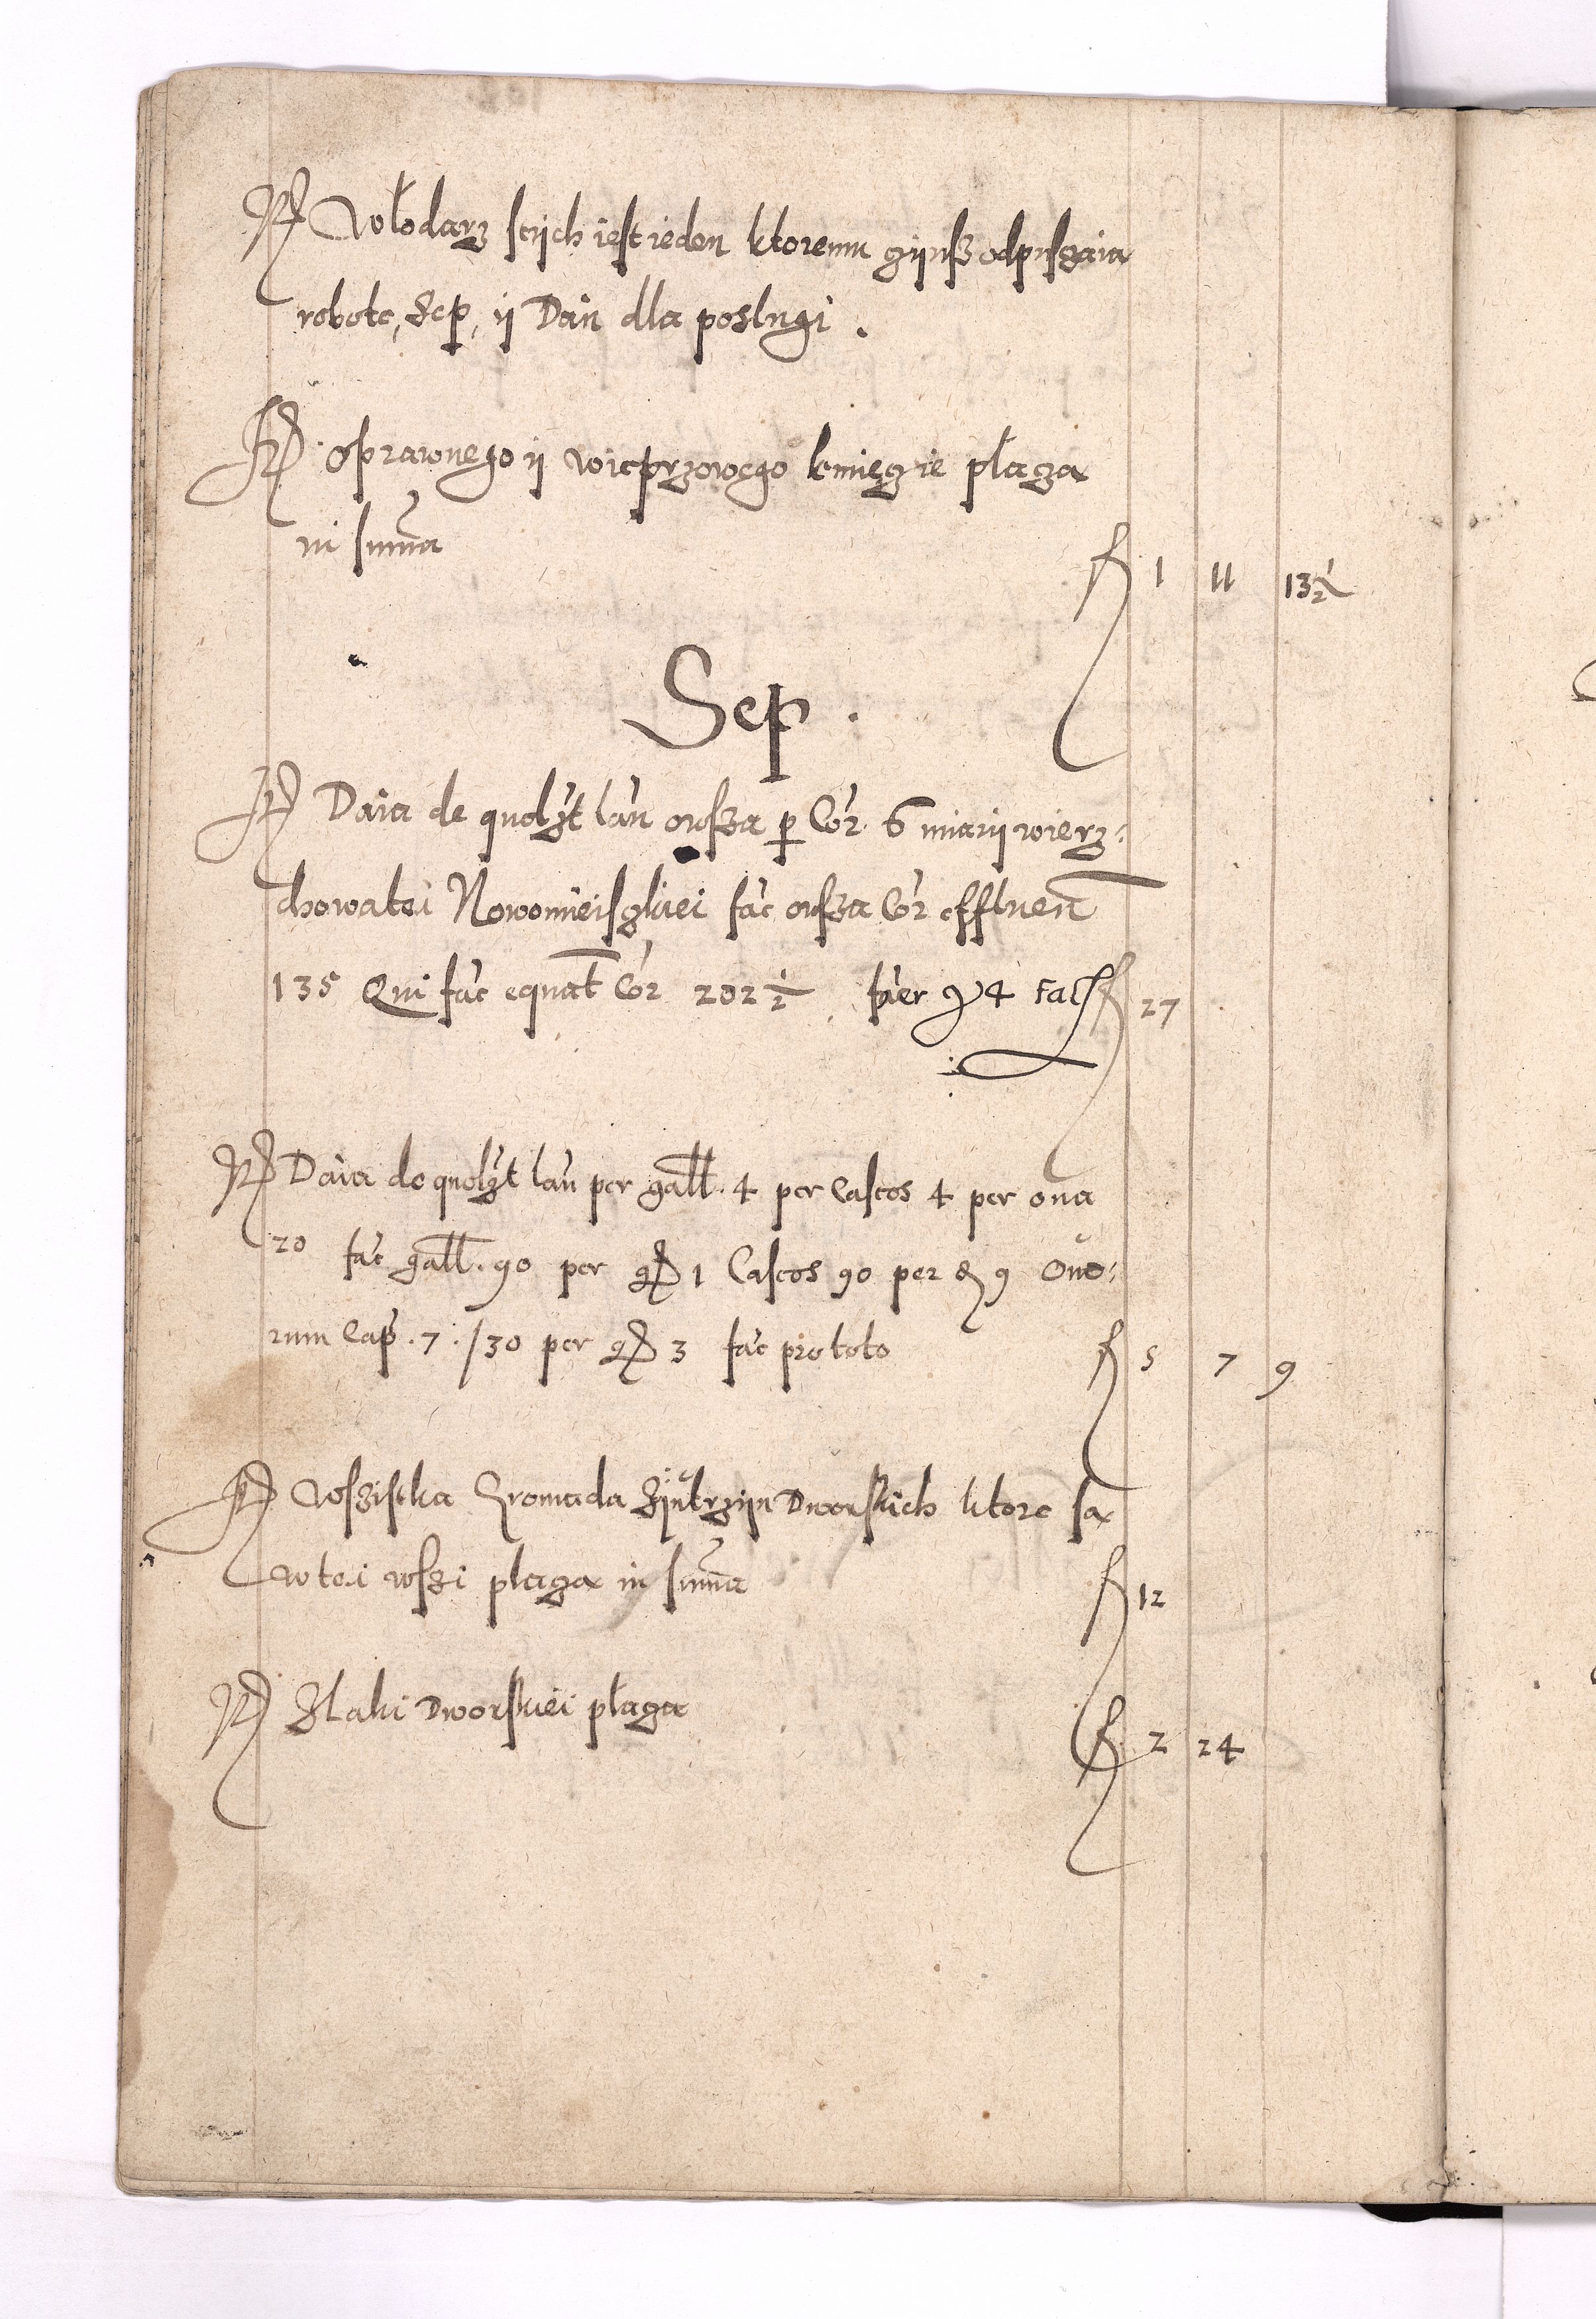 Włodarz stych iest ieden ktoremu czynsz odpusczaia
robote, Sep, y Dan dla poslugi.
Oprawnego y wieprzowego kmięczie płacza
in suma f 1 11 13½
Sep.
Daia de quolyt lan owsza p Cor 6 miary wierz:
chowatei Nowomieisczkiei fac owsza Cor effluen
135 Qui fac equat Cor 202½ 4 fac f 27
Daia de quolyt lan per gall. 4 per Caseos 4 per oua
20 fac gall. 90 per 1 Caseos 90 per 9 Ouo:
rum Cap. 7 /30 per 3 fac pro toto f 5 7 9
Wszistka Gromada Dworskich ktore sa
w tei wszi placza in suma f 12
Z laki Dworskiei płacza f 2 24